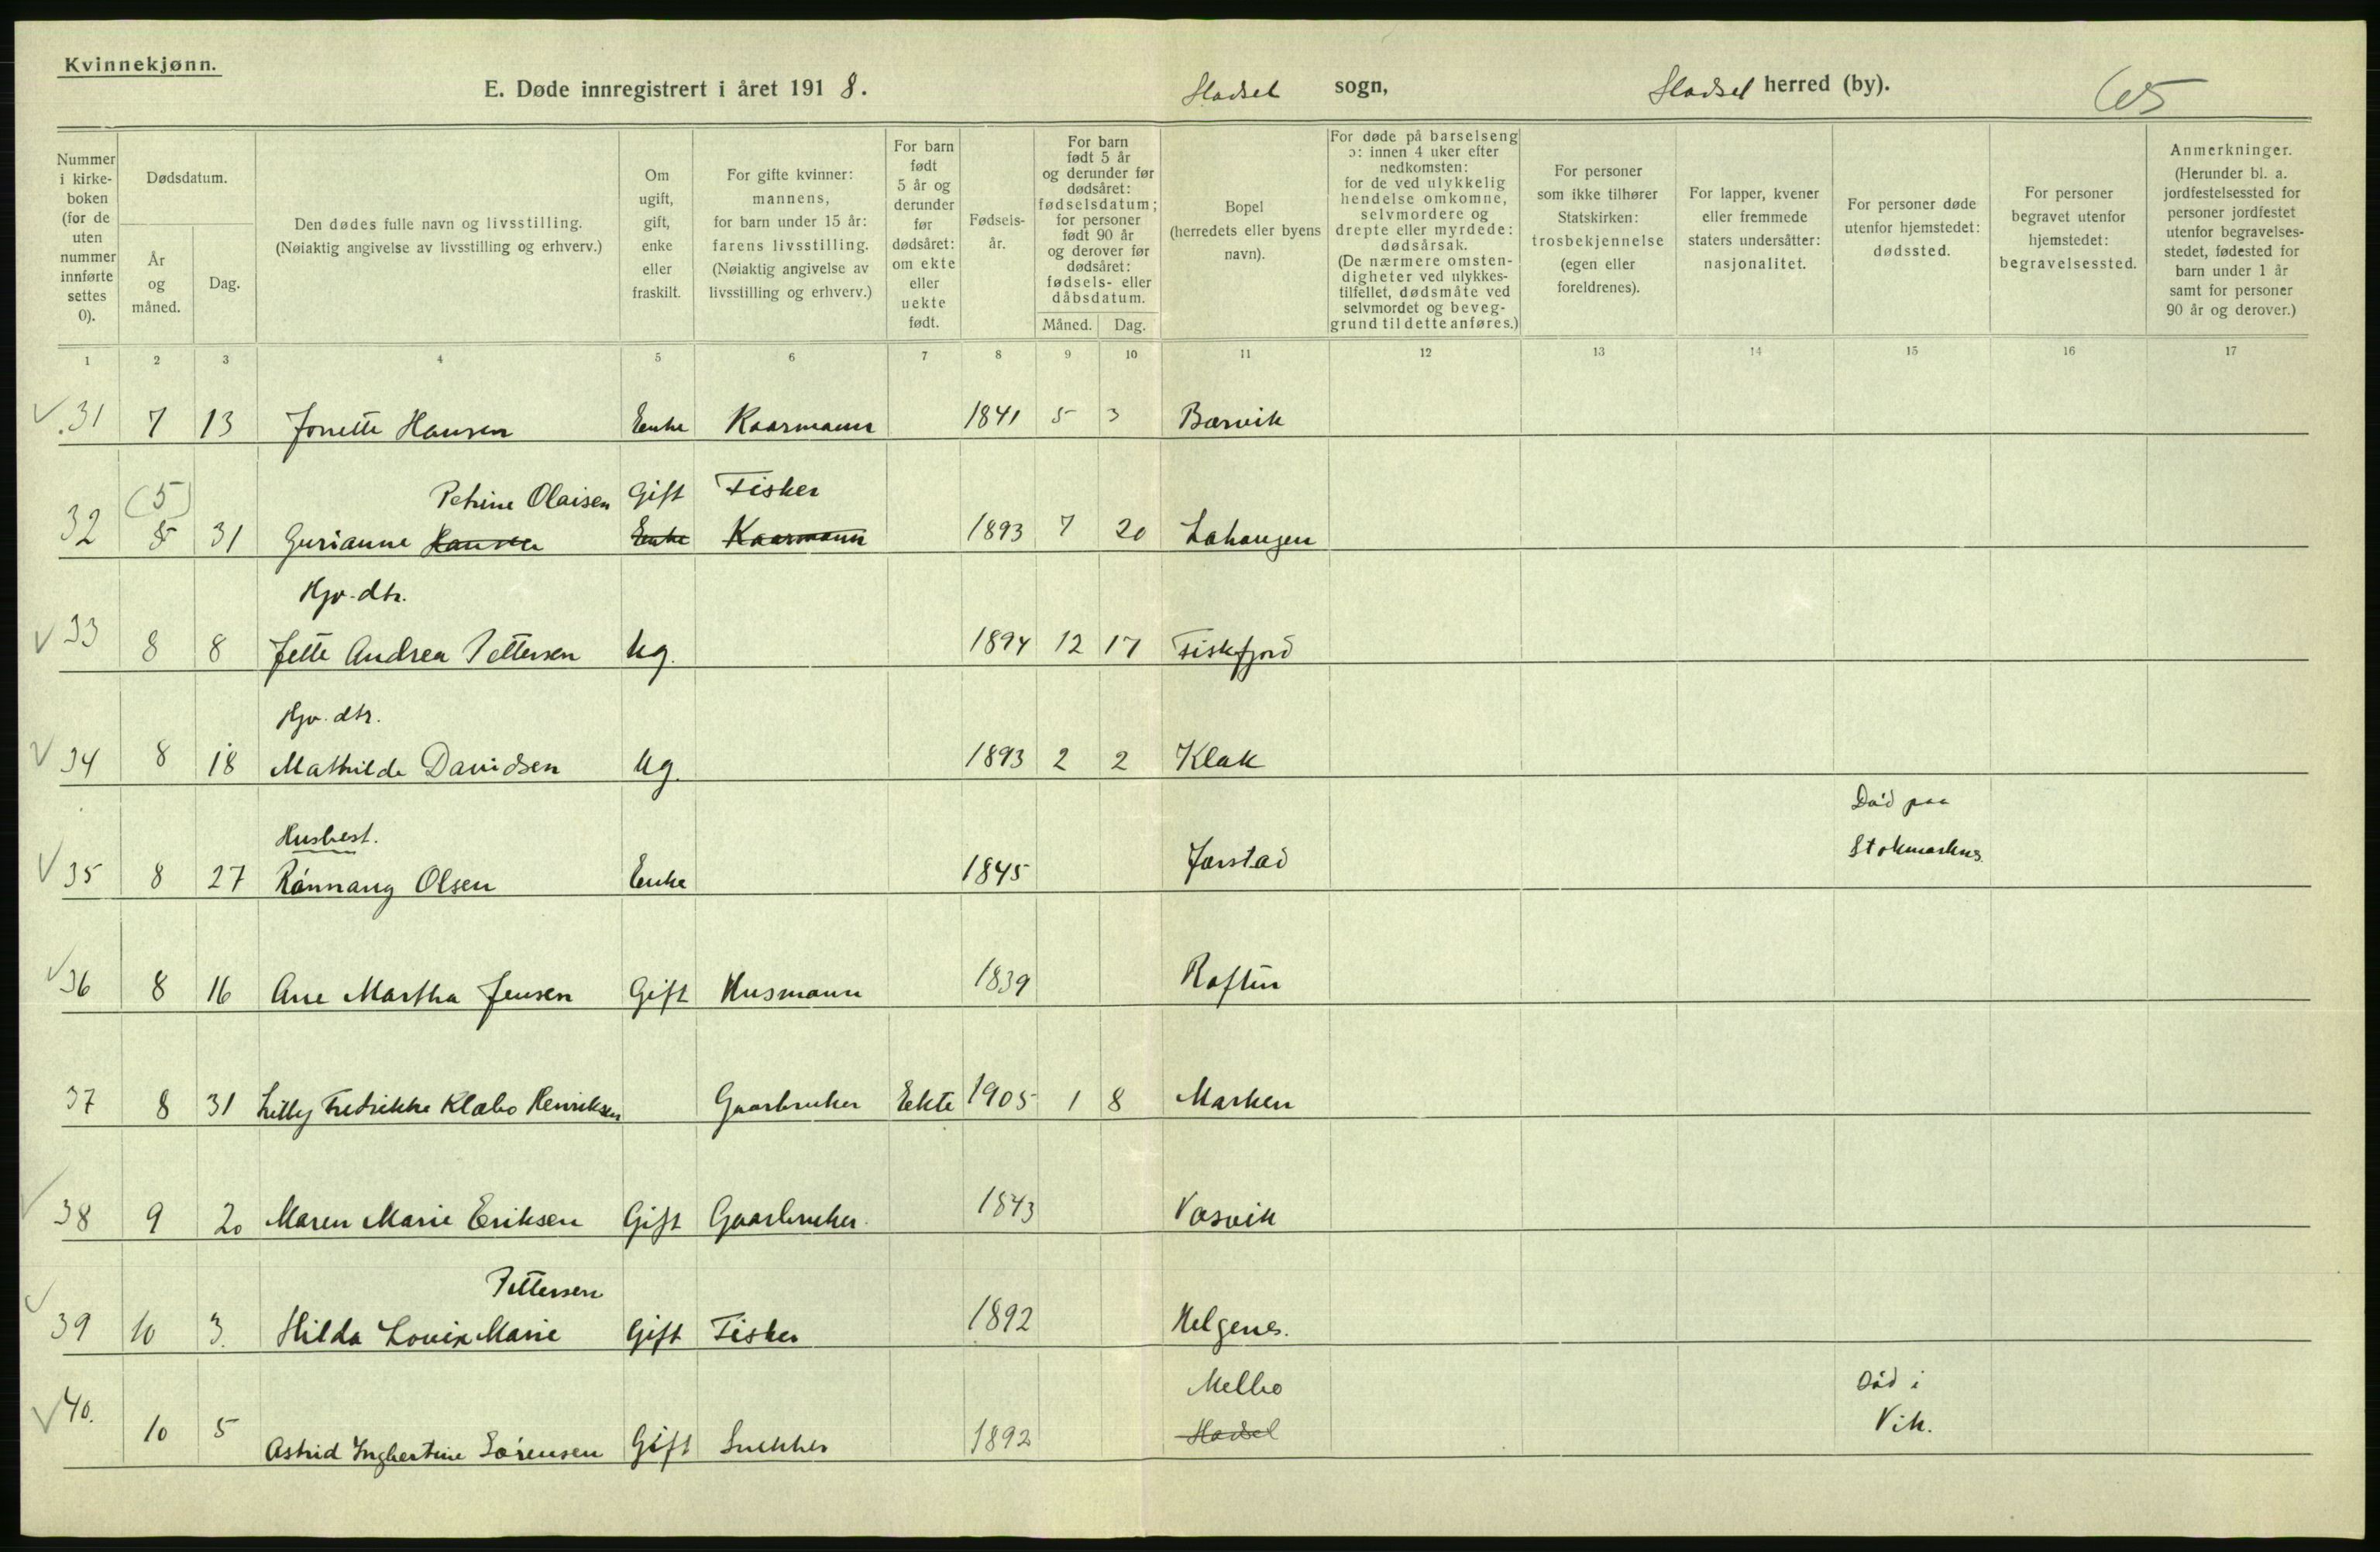 Kvinnekjønn.
E. Døde innregistrert i året 1918. Hadsel sogn, Hadsel herred (by). 65
Nummer i kirke- boken (for de uten nummer innførte settes 0).
Dødsdatum.
År og måned.
Dag.
Den dødes fulle navn og livsstilling. (Nøiaktig angivelse av livsstilling og erhverv.)
Om ugift, gift, enke eller fraskilt.
For gifte kvinner: mannens, for barn under 15 år: farens livsstilling. (Nøiaktig angivelse av livsstilling og erhverv.)
For barn født 5 år og derunder før dødsåret: om ekte eller uekte født.
Fødsels- år.
For barn født 5 år og derunder før dødsåret: fødselsdatum; for personer født 90 år og derover før dødsåret: fødsels- eller dåbsdatum.
Måned. Dag.
Bopel (herredets eller byens navn).
For døde på barselseng ɔ: innen 4 uker efter nedkomsten: for de ved ulykkelig hendelse omkomne, selvmordere og drepte eller myrdede: dødsårsak. (De nærmere omsten- digheter ved ulykkes- tilfellet, dødsmåte ved selvmordet og beveg- grund til dette anføres.)
For personer som ikke tilhører Statskirken: trosbekjennelse (egen eller foreldrenes).
For lapper, kvener eller fremmede staters undersåtter: nasjonalitet.
For personer døde utenfor hjemstedet: dødssted.
For personer begravet utenfor hjemstedet: begravelsessted.
Anmerkninger. (Herunder bl. a. jordfestelsessted for personer jordfestet utenfor begravelses- stedet, fødested for barn under 1 år samt for personer 90 år og derover.)
1 2 3 4 5 6 7 8 9 10 11 12 13 14 15 16 17
31 7 13 Jonette Hansen Enke Kaarmann 1841 5 3 Børvik
(5) Petrine Olaisen Gift Fisker
32 8 31 Gurianne Hansen Enke Kaarmann 1893 7 20 Lahaugen
Hjv. dtr.
33 8 8 Jette Andrea Pettersen Ug. 1894 12 17 Fiskfjord
Hjv. dtr.
34 8 18 Mathilde Davidsen Ug. 1893 2 2 Klak
Husbest. Død paa
35 8 27 Rønnaug Olsen Enke 1845 Jørstad Stokmarknes
36 8 16 Ane Martha Jensen Gift Husmann 1839 Raftun
37 8 31 Lilly Fredrikke Klæbo Henriksen Gaarbruker Ekte 1905 1 8 Marken
38 9 20 Maren Marie Eriksen Gift Gaarbruker 1843 Vasvik
Pettersen
39 10 3. Hilda Lovise Marie Gift Fisker 1892 Helgenes.
Melbo Død i
40. 10 5 Astrid Ingbertine Sørensen Gift Snekker 1892 Hadsel Vik.